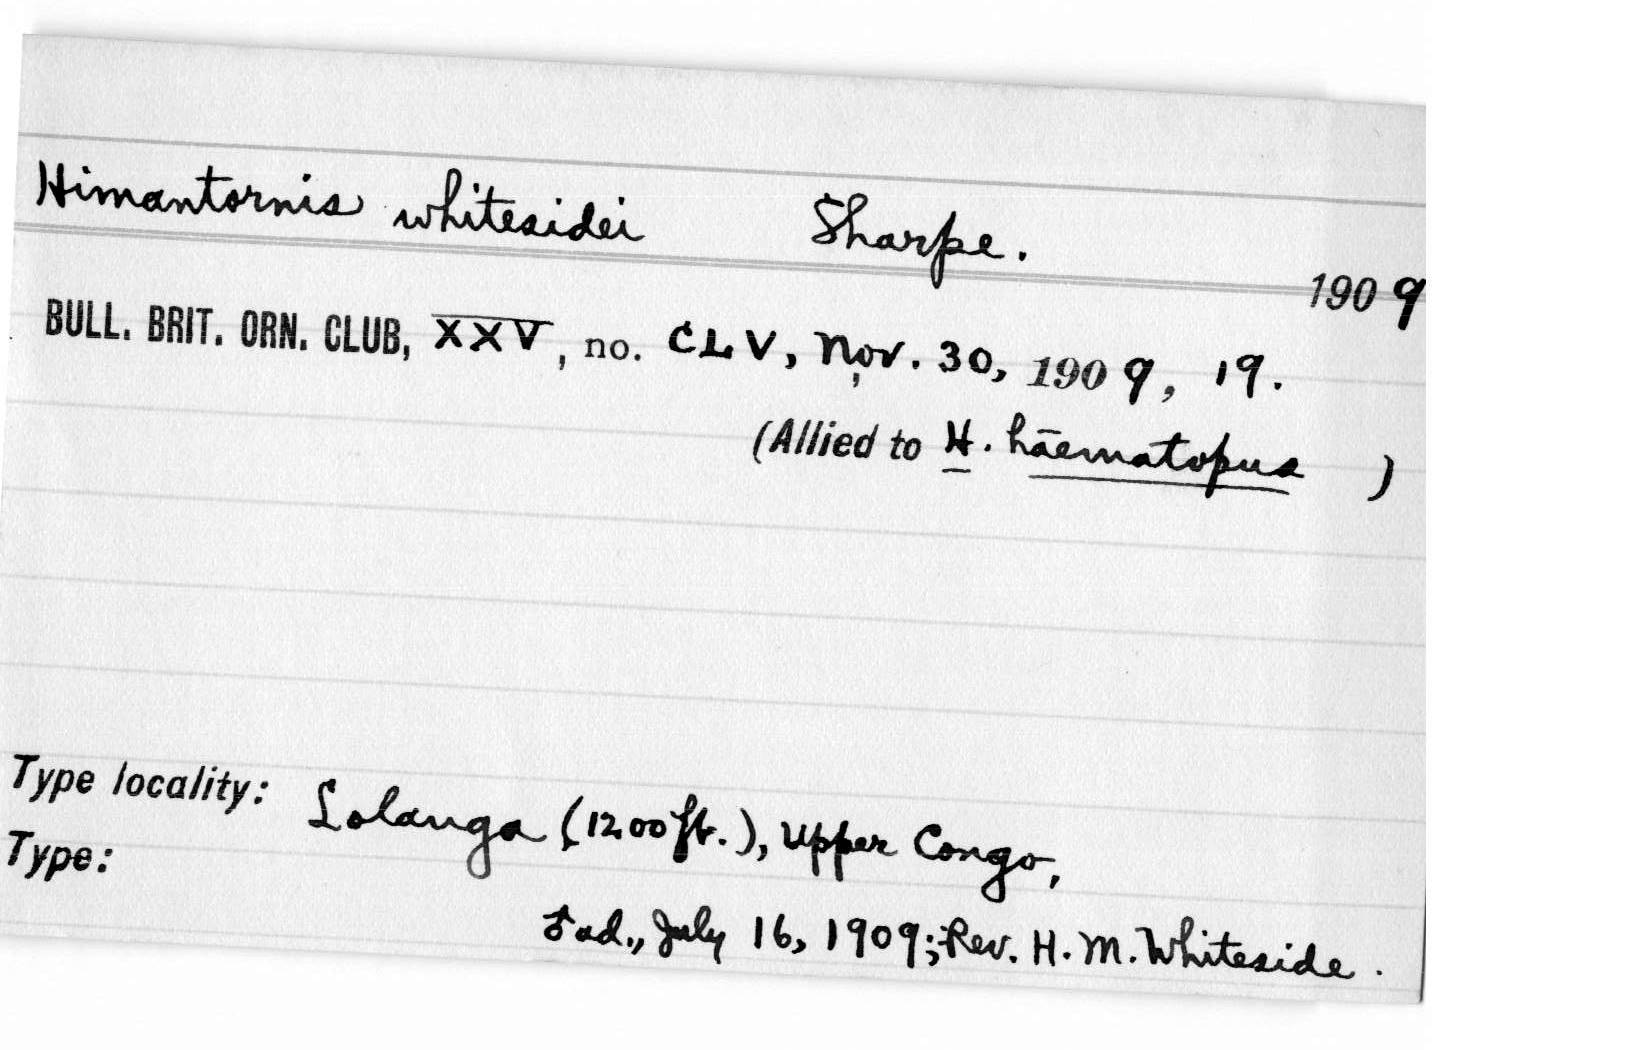 Himantornis whitesidei Sharpe.
1909
BULL. BRIT. ORN. CLUB, XXV, no. CLV, Nov. 30, 1909, 19.
(Allied to H. häematopus )
Type locality: Lolanga (1200 ft.), Upper Congo,
Type:
ad., July 16, 1909; Rev. H. M. Whiteside.